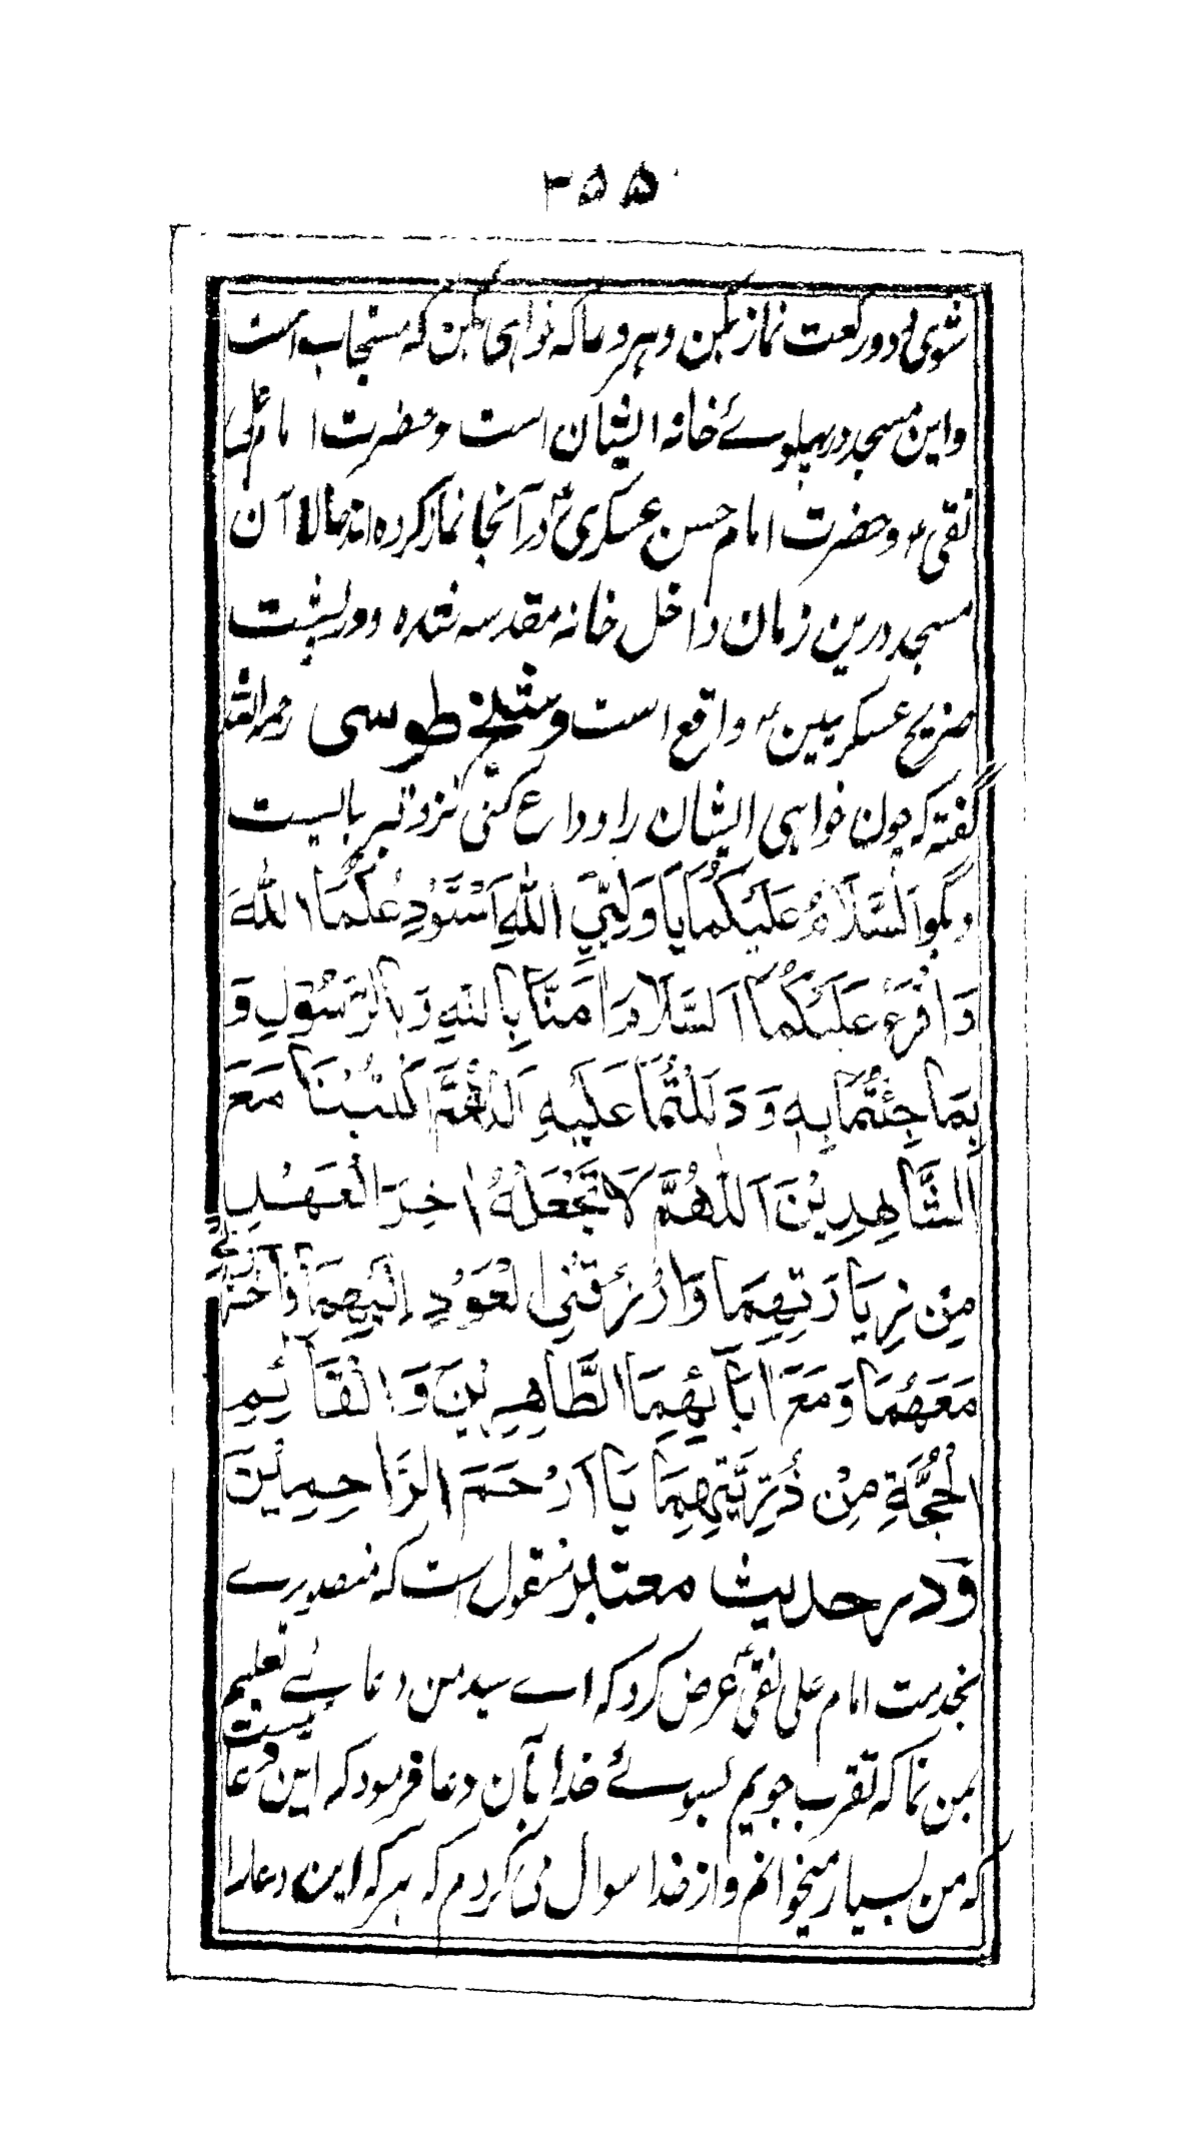 ۳۵۵
شوی دو رکعت نماز بکن و هر دعا که خواهی بکن که مستجاب است
و این مسجد در پهلوئے خانه ایشان است و حضرت امام علی
نقی؏ و حضرت امام حسن عسکری؏ در آنجا نماز کرده اند حالا آن
مسجد درین زمان داخل خانه مقدسه شده و در پشت
ضریح عسکریین؏ واقع است و شیخ طوسی رحمه الله
گفته که چون خواهی ایشان را وداع کنی نزد قبر بایست
و بگو اَلسَّلَامُ عَلَیْکُمَا یَا وَلِیَّیِ اللهِ اَسْتَوْدِعُکُمَا اللهَ
وَ اَقْرَءُ عَلَیْکُمَا اَلسَّلَامَ اٰمَنَّا بِاللهِ وَ بِالرَّسُوْلِ وَ
بِمَا جِئْتُمَا بِهٖ وَ دَلَلْتُمَا عَلَیْهِ اَللّٰهُمَّ اکْتُبْنَا مَعَ
الشَّاهِدِیْنَ اَللّٰهُمَّ لَا تَجْعَلْهُ اٰخِرَ الْعَهْدِ
مِنْ زِیَارَتِهِمَا وَارْزُقْنِی الْعَوْدَ اِلَیْهِمَا وَاحْشُرْنِیْ
مَعَهُمَا وَ مَعَ اٰبَآئِهِمَا الطَّاهِرِیْنَ وَ الْقَآئِمِ
الْحُجَّةِ مِنْ ذُرِّیَّتِهِمَا یَا اَرْحَمَ الرَّاحِمِیْنَ
وَ در حدیث معتبر منقول است که منصورے
بخدمت امام علی نقی؏ عرض کرد که اے سید من دعائے تعلیم
بمن نما که تقرب جویم بسوئے خدا بآن دعا فرمود که این دعا
ئیست
که من بسیار میخوانم و از خدا سوال می کردم که هر که این دعا را